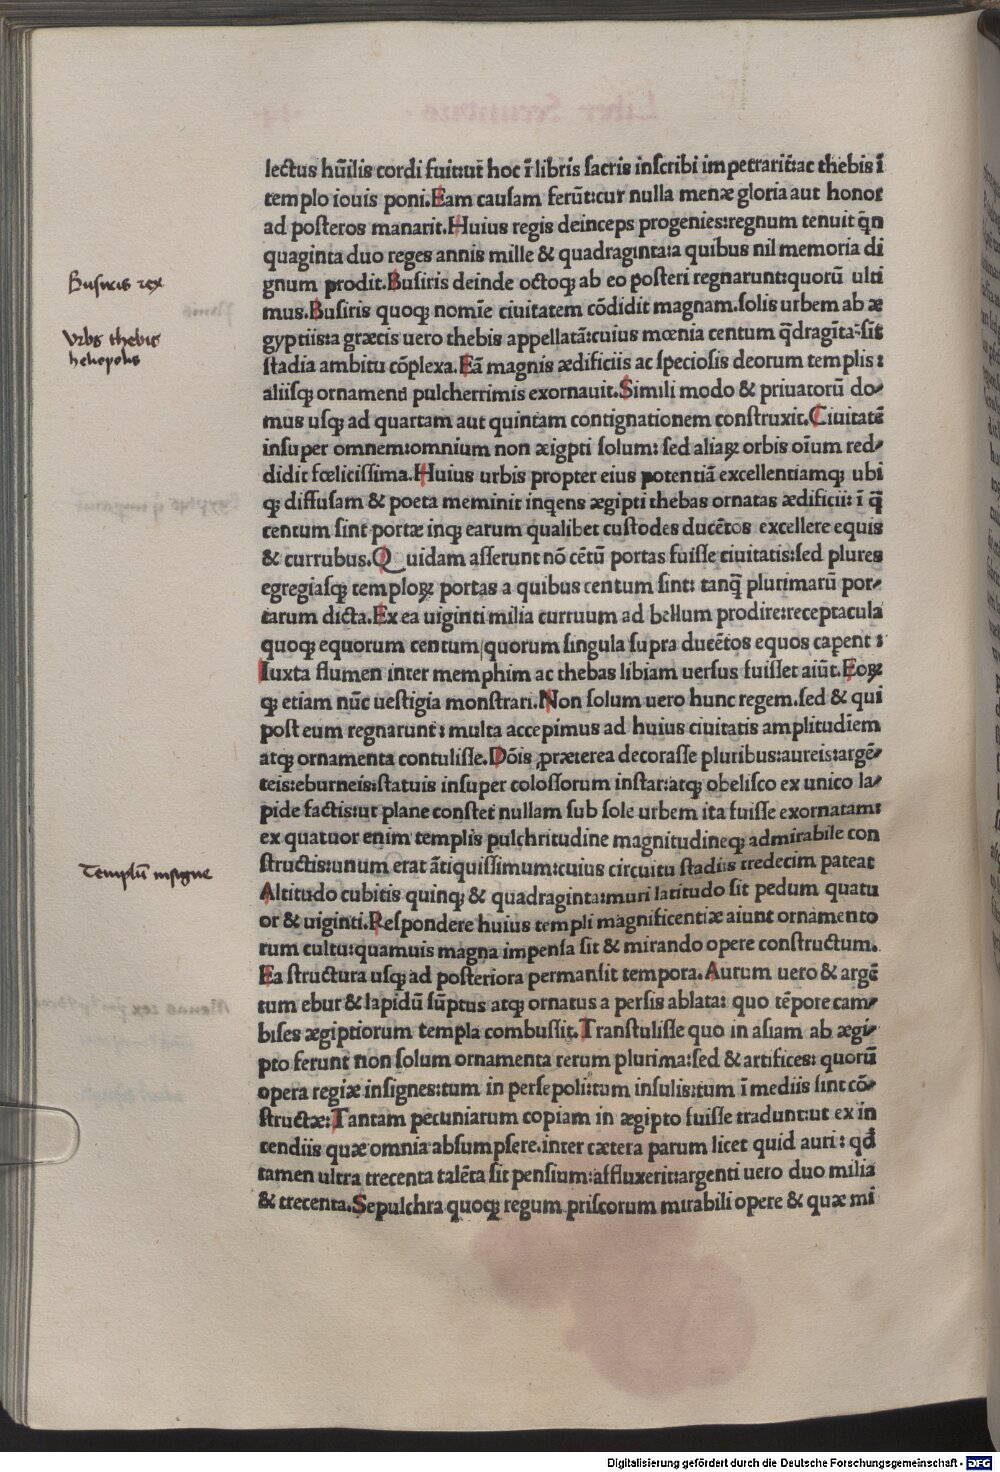 lectus hũilis cordi fuit:ut hoc ĩ libris sacris inscribi impetrarit:ac thebis ĩ
templo iouis poni.Eam causam ferũt:cur nulla menæ gloria aut honor
ad posteros manarit.Huius regis deinceps progenies:regnum tenuit q̃n
quaginta duo reges annis mille & quadraginta:a quibus nil memoria di
gnum prodit.Busiris deinde octoq; ab eo posteri regnarunt:quorũ ulti
mus.Busiris quoq; nomĩe ciuitatem cõdidit magnam.solis urbem ab æ
gyptiis:a græcis uero thebis appellatã:cuius mœnia centum q̃dragĩta:sit
stadia ambitu cõplexa.Eã magnis ædificiis ac speciosis deorum templis:
aliisq; ornamentis pulcherrimis exornauit.Simili modo & priuatorũ do-
mus usq; ad quartam aut quintam contignationem construxit.Ciuitatẽ
insuper omnem:omnium non æigpti solum: sed aliaꝝ orbis oĩum red-
didit fœlicissima.Huius urbis propter eius potentiã excellentiamq; ubi
q; diffusam & poeta meminit inqens ægipti thebas ornatas ædificiit ĩ q̃
centum sint portæ inq; earum qualibet custodes ducẽtos excellere equis
& curribus.Quidam asserunt nõ cẽtũ portas fuisse ciuitatis:sed plures
egregiasq; temploꝝ portas a quibus centum sint: tanq̃ plurimarũ por-
tarum dicta.Ex ea uiginti milia curruum ad bellum prodire:receptacula
quoq; equorum centum quorum singula supra ducẽtos equos caperẽt :
Iuxta flumen inter memphim ac thebas libiam uersus fuisset aiũt.Eoꝝ
q; etiam nũc uestigia monstrari.Non solum uero hunc regem.sed & qui
post eum regnarunt: multa accepimus ad huius ciuitatis amplitudĩem
atq; ornamenta contulisse.Dõis præterea decorasse pluribus:aureis:argẽ-
teis:eburneis:statuis insuper colossorum instar:atq; obelisco ex unico la-
pide factis:ut plane constet nullam sub sole urbem ita fuisse exornatam:
ex quatuor enim templis pulchritudine magnitudineq; admirabile con
structis:unum erat ãtiquissimum:cuius circuitu stadiis tredecim pateat
Altitudo cubitis quinq; & quadraginta:muri latitudo sit pedum quatu
or & uiginti.Respondere huius templi magnificentiæ aiunt ornamento
rum cultu:quamuis magna impensa sit & mirando opere constructum.
Ea structura usq; ad posteriora permansit tempora.Aurum uero & argẽ
tum ebur & lapidũ sũptus atq; ornatus a persis ablata: quo tẽpore cam-
bises ægiptiorum templa combussit.Transtulisse quo in asiam ab ægi-
pto ferunt non solum ornamenta rerum plurima:sed & artifices: quorũ
opera regiæ insignes:tum in persepoli:tum insulis:tum ĩ mediis sint cõ-
structæ:Tantam pecuniarum copiam in ægipto fuisse tradunt:ut ex in
cendiis quæ omnia absumpsere.inter cætera parum licet quid auri: qđ
tamen ultra trecenta talẽta sit pensium:affluxerit:argenti uero duo milia
& trecenta.Sepulchra quoq; regum priscorum mirabili opere & quæ mĩ
Busiris rex
Vrbs thebis
heliopolis
Templũ insigne
Digitalisierung gefördert durch die Deutsche Forschungsgemeinschaft - DFG